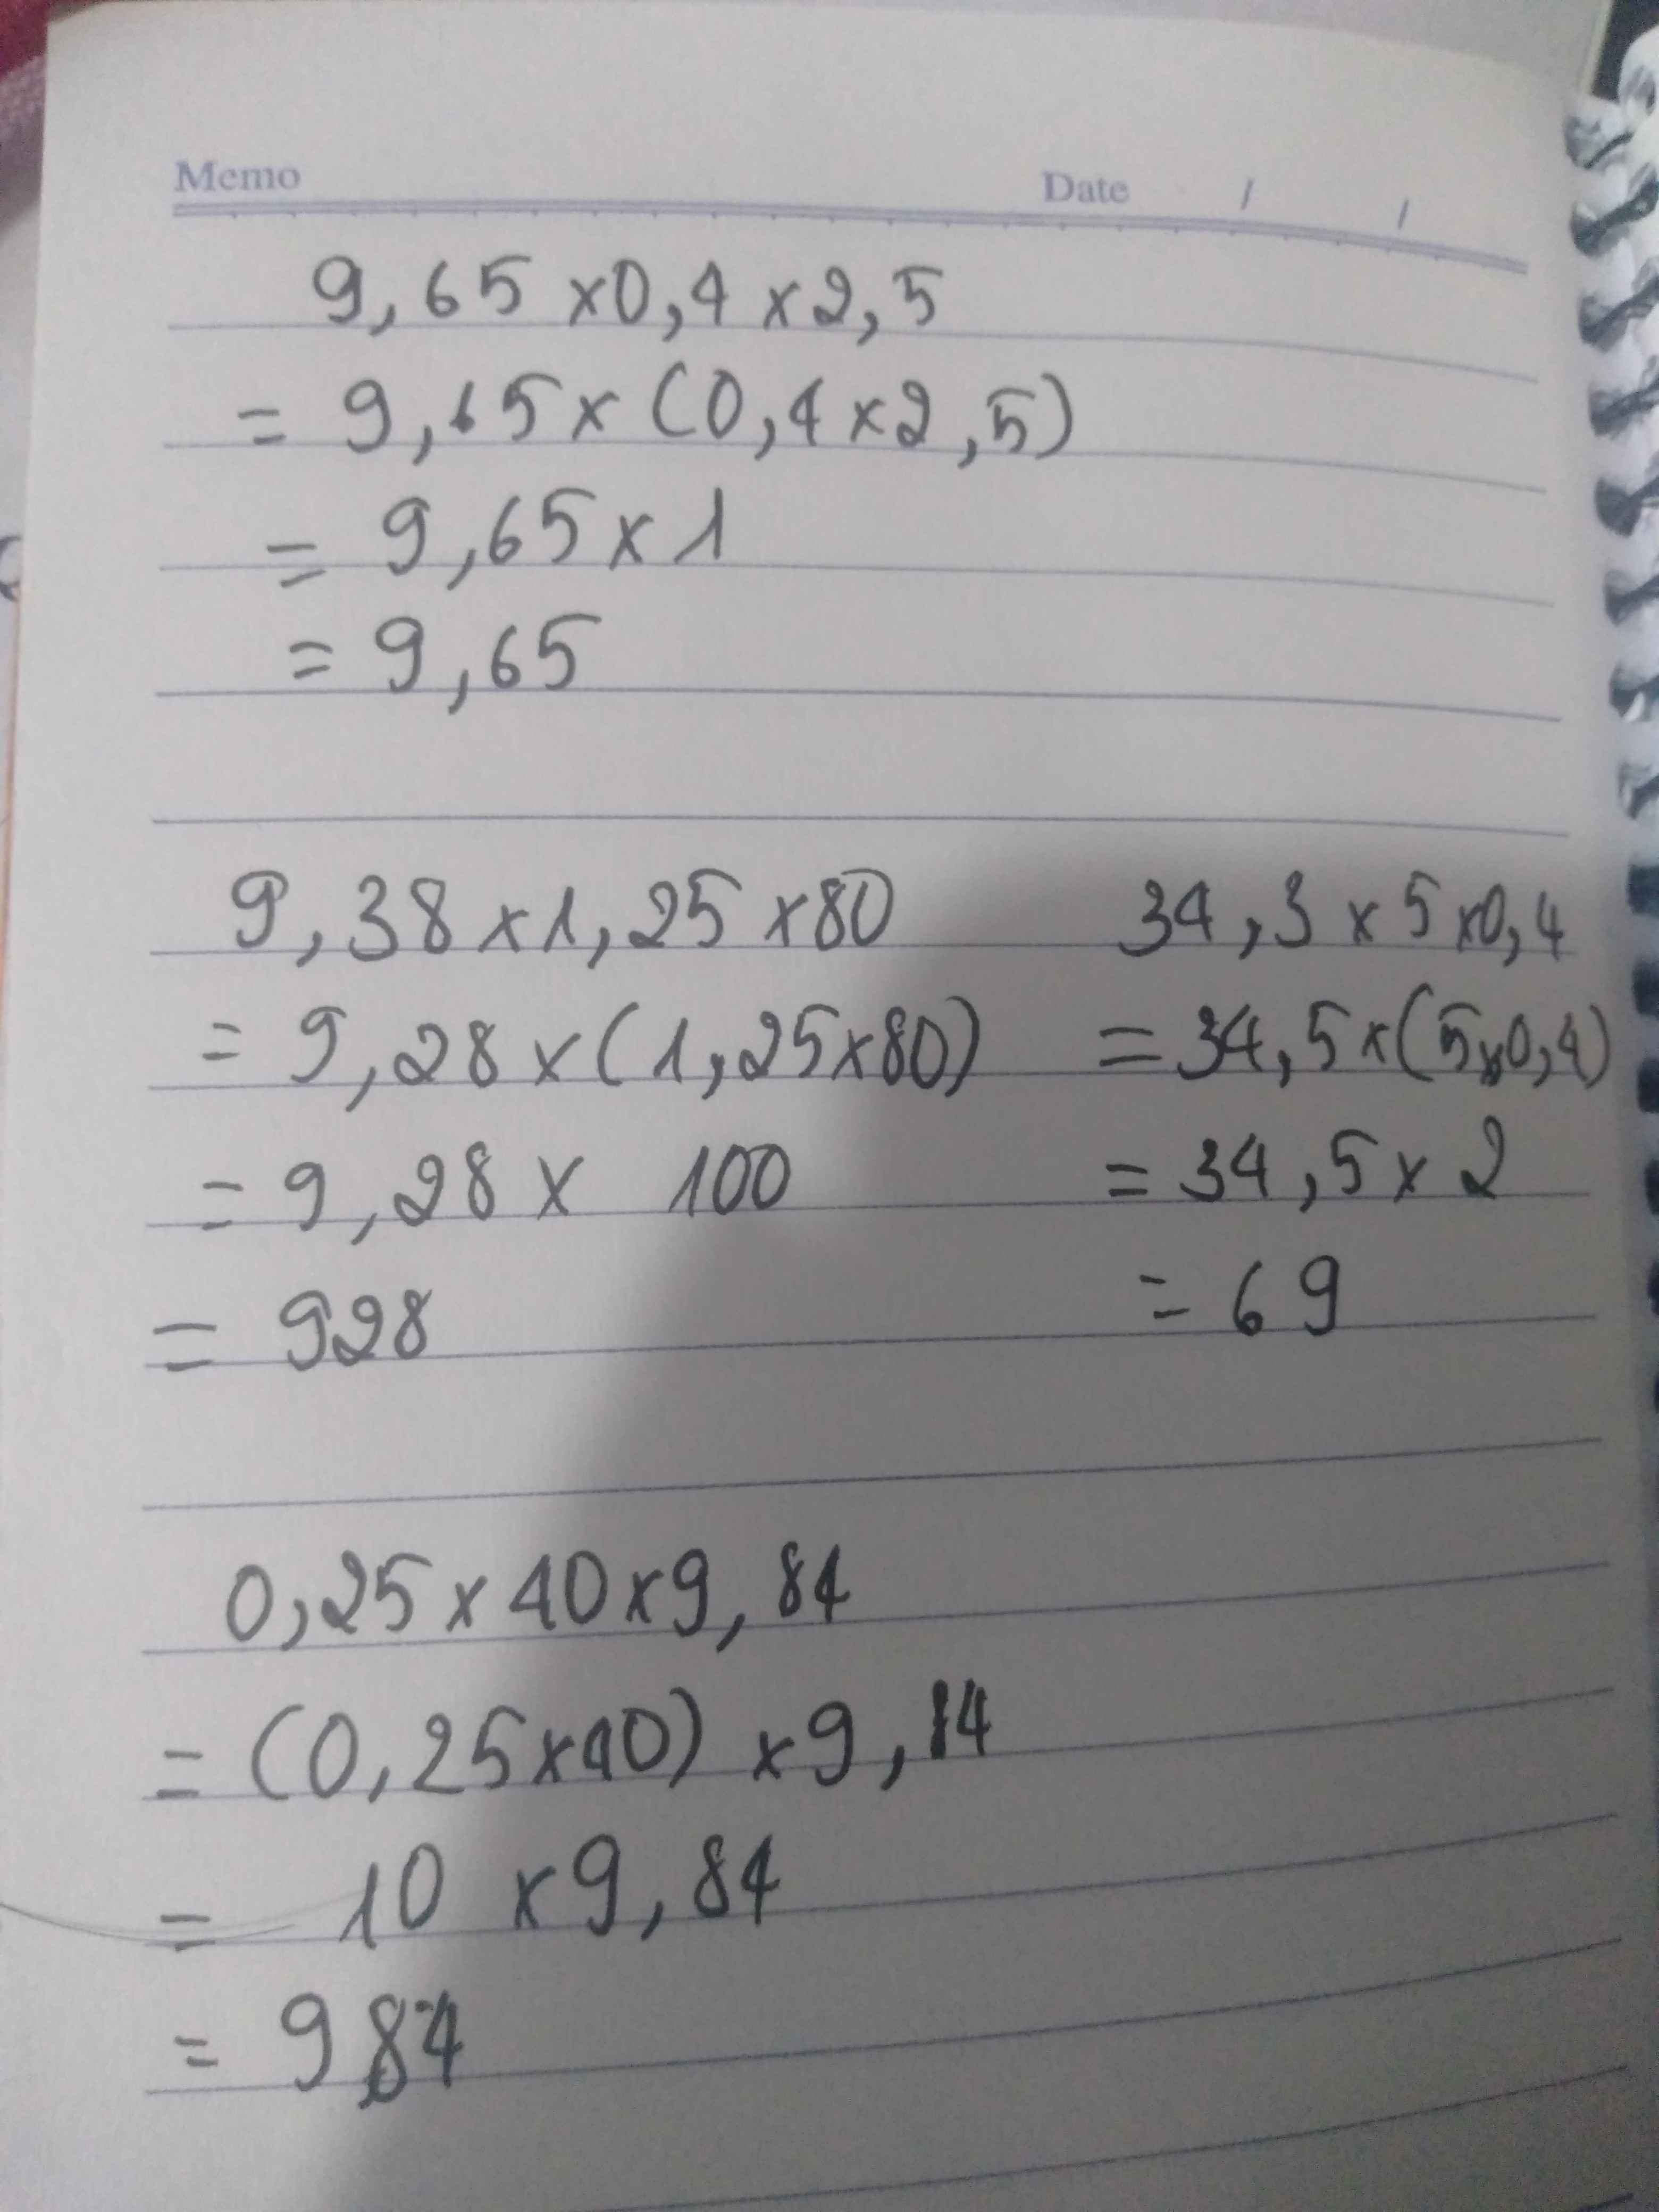 Memo Date / /
9,65 x 0,4 x 2,5
= 9,65 x (0,4 x 2,5)
= 9,65 x 1
= 9,65
9,38 x 1,25 x 80
= 9,28 x (1,25 x 80)
= 9,28 x 100
= 928
34,3 x 5 x 0,4
= 34,5 x (5 x 0,4)
= 34,5 x 2
= 69
0,25 x 40 x 9,84
= (0,25 x 40) x 9,84
= 10 x 9,84
= 984